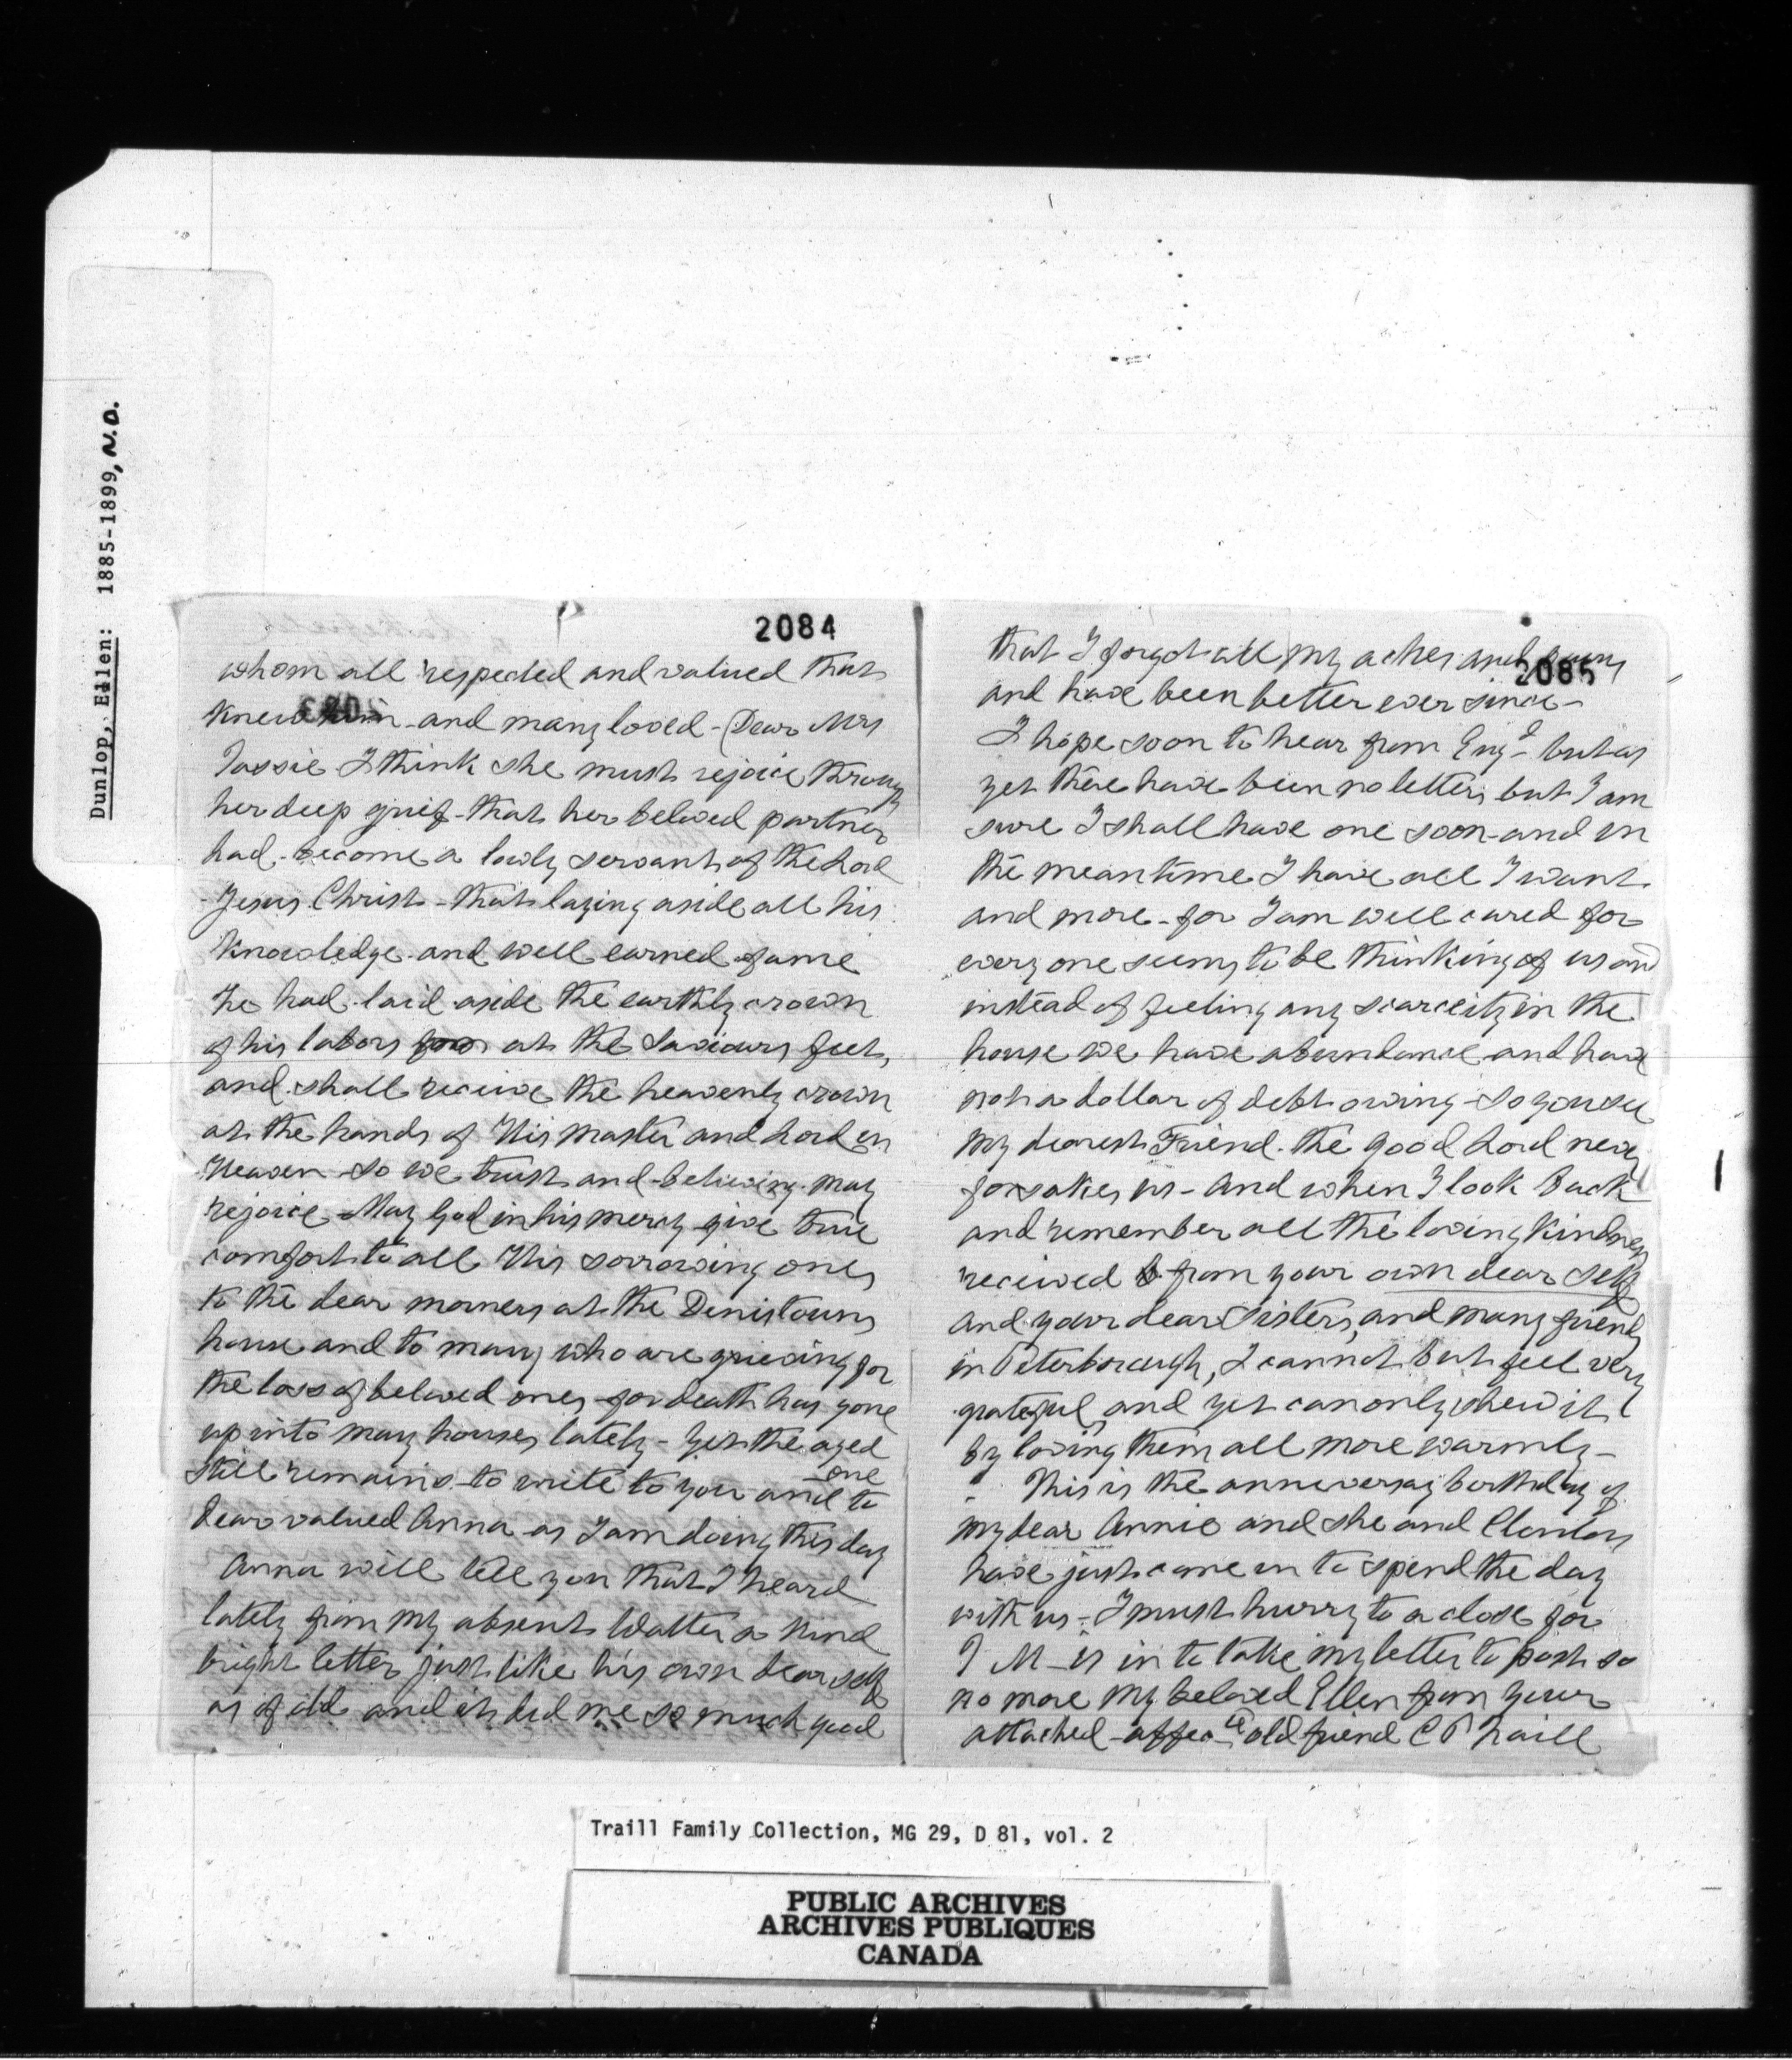 Dunlop, Ellen: 1885-1899, N.D.
2084
whom all respected and valued that
knew him - and many loved - Dear Mrs
Tassie I think she must rejoice throug
her deep grief - that her beloved partner
had become a lowly servant of the Lord
Jesus Christ - that laying aside all his
knowledge and well earned fame
he had laid aside the earthly crown
of his labors at the Saviours feet,
and shall receive the heavenly crown
at the hands of His Master and Lord in
Heaven - So we trust and believing may
rejoice - May God in his mercy give true
comfort to all His sorrowing ones
to the dear morners at the Denistouns
house and to many who are grieving for
the loss of beloved ones - for death has gone
up into many houses lately - Yet the aged
one
still remains to write to you and to
dear valued Anna as I am doing this day
Anna will tell you that I heard
lately from my absent Walter a kind
bright letter just like his own dear self
as of old and it did me so much good
2085
that I forgot all my aches and pains
and have been better ever since -
I hope soon to hear from Engd - but as
yet there have been no letters but I am
sure I shall have one soon - and in
the meantime I have all I want
and more - for I am well cared for
every one seems to be thinking of us and
instead of feeling any scarceity in the
house we have abundance and have
not a dollar of debt owing - So you see
my dearest Friend. the good Lord never
forsakes us - And when I look back
and remember all the loving kindness
received from your own dear self
and your dear Sisters, and many friends
in Peterborough, I cannot but feel very
grateful, and yet can only shew it
by loving them all more warmly -
This is the anneversay birthday of
my dear Annie and she and Clinton
have just come in to spend the day
with us - I must hurry to a close for
I M - is in to take my letter to post so
no more my beloved Ellen from your
attached - affecte old friend C P Traill
Traill Family Collection, MG 29, D 81, vol. 2
PUBLIC ARCHIVES
ARCHIVES PUBLIQUES
CANADA